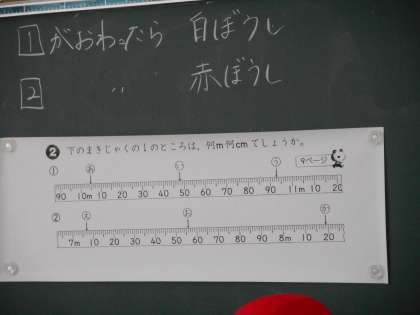 1 がおわったら 白ぼうし
2 〃 赤ぼうし
2 下のまきじゃくの↓のところは、何m何cmでしょうか。
9ページ
① あ い う
90 10m 10 20 30 40 50 60 70 80 90 11m 10 20
② え お か
7m 10 20 30 40 50 60 70 80 90 8m 10 20